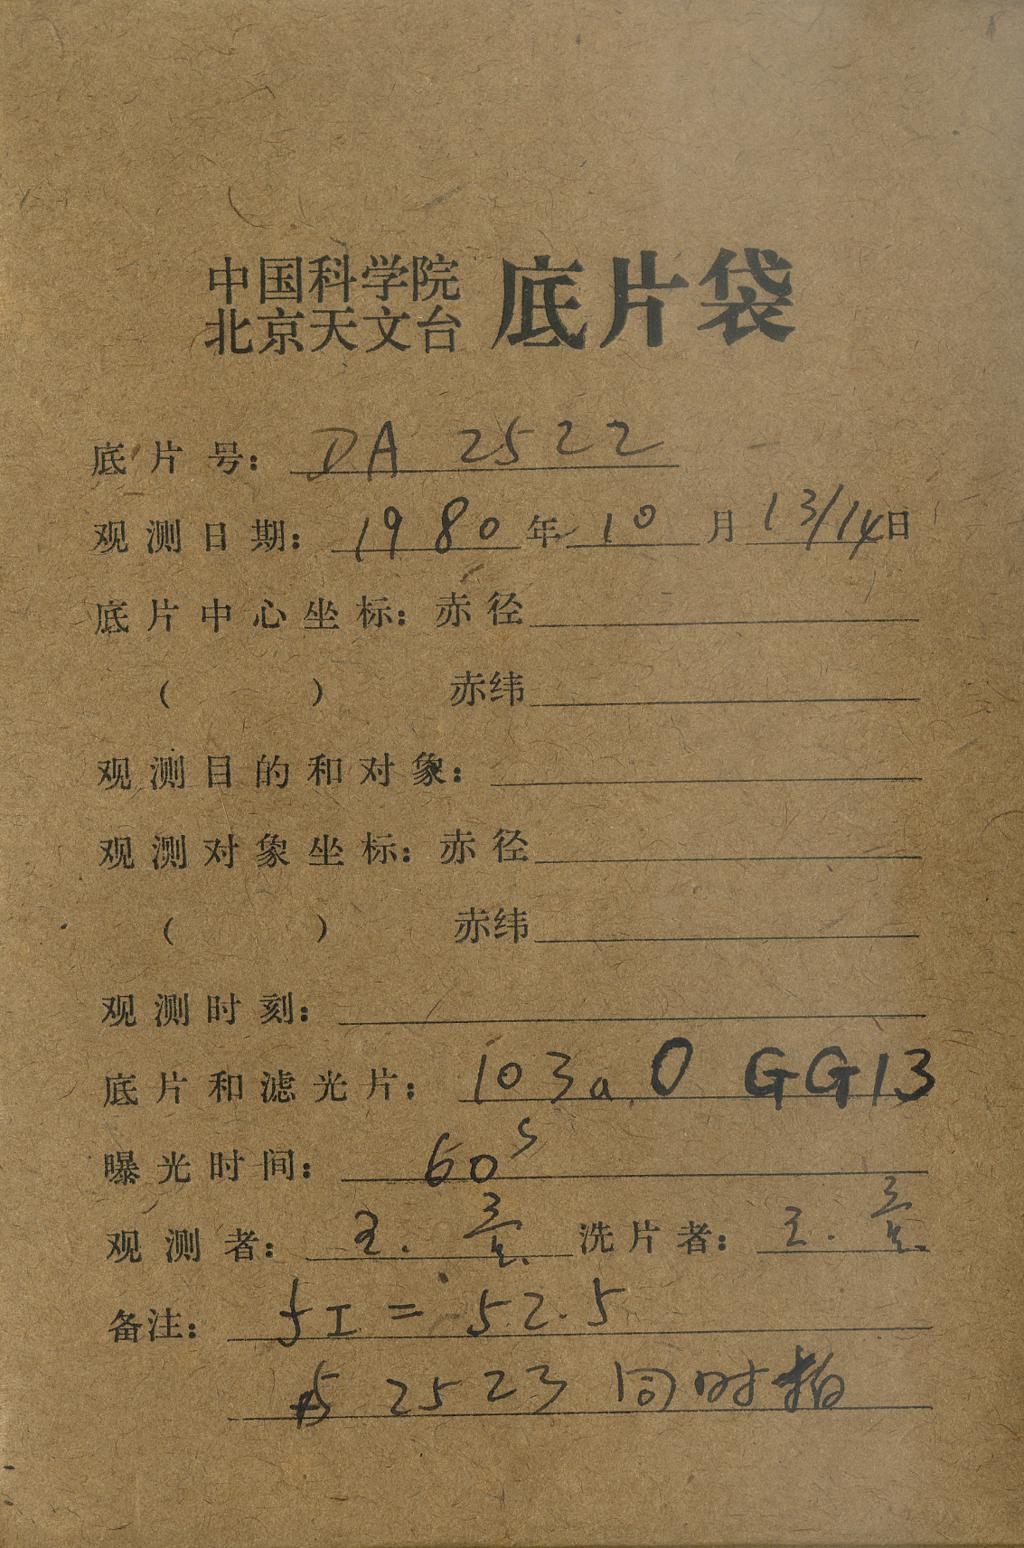 中国科学院
北京天文台 底片袋
底片号: DA 2522
观测日期: 1980年10月13/14日
底片中心坐标: 赤径
( ) 赤纬
观测目的和对象:
观测对象坐标: 赤径
( ) 赤纬
观测时刻:
底片和滤光片: 103a O GG13
曝光时间: 60s
观测者: 王. 洗片者: 王.
备注: fI = 52.5
2523 同时拍